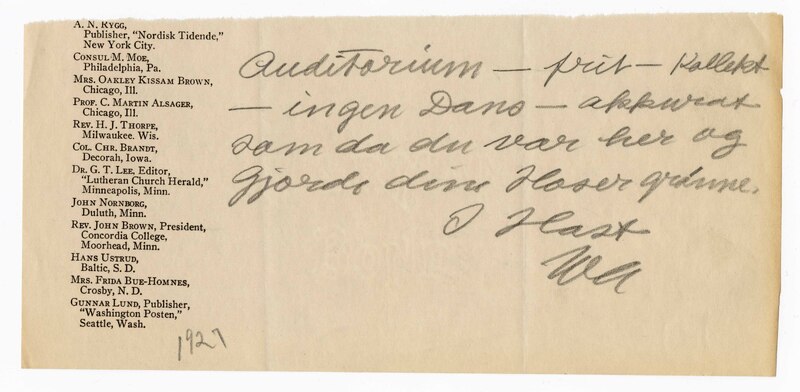 A. N. RYGG,
Publisher, "Nordisk Tidende,"
New York City.
CONSUL M. MOE,
Philadelphia, Pa.
MRS. OAKLEY KISSAM BROWN,
Chicago, Ill.
PROF. C. MARTIN ALSAGER,
Chicago, Ill.
REV. H. J. THORPE,
Milwaukee. Wis.
COL. CHR. BRANDT,
Decorah, Iowa.
DR. G. T. LEE, Editor,
"Lutheran Church Herald,"
Minneapolis, Minn.
JOHN NORNBORG,
Duluth, Minn.
REV. JOHN BROWN, President,
Concordia College,
Moorhead, Minn.
HANS USTRUD,
Baltic, S. D.
MRS. FRIDA BUE-HOMNES,
Crosby, N. D.
GUNNAR LUND, Publisher,
"Washington Posten,"
Seattle, Wash.
1927
Auditorium — frit — Kollekt
— ingen Dans — akkurat
som da du var her og
Gjorde dine Hoser grønne.
I Hast
WA